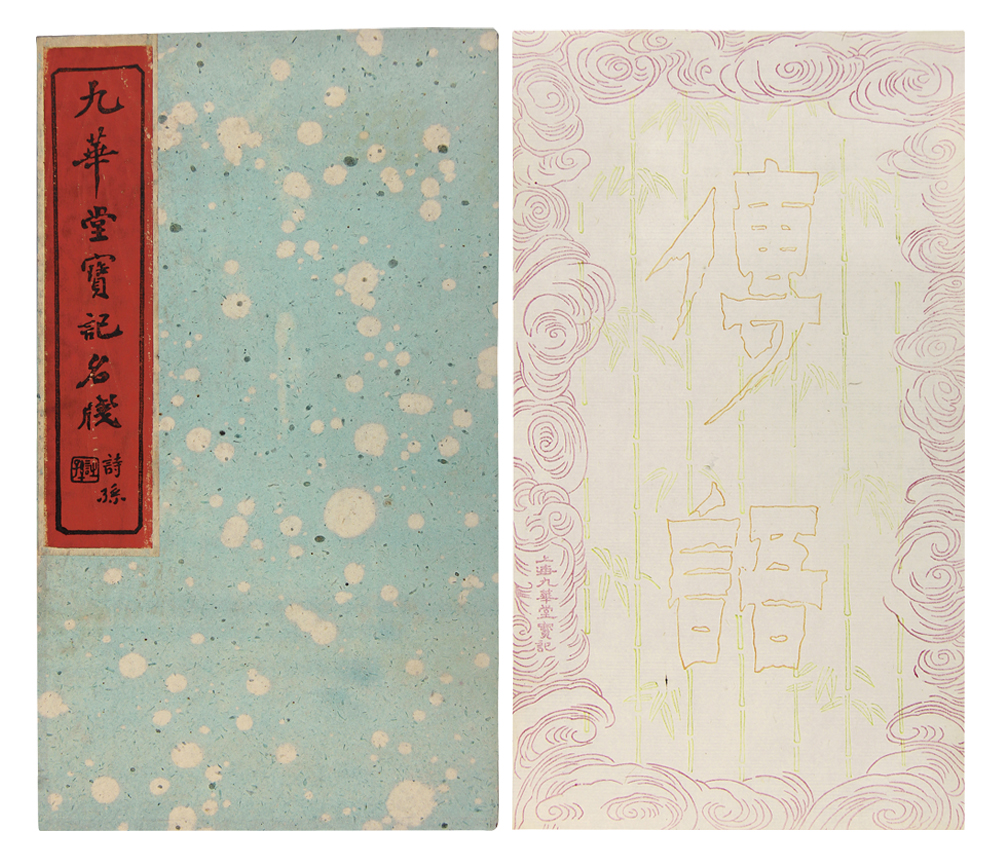 九華堂寶記名牋
詩孫
傳語
上海九華堂寶記